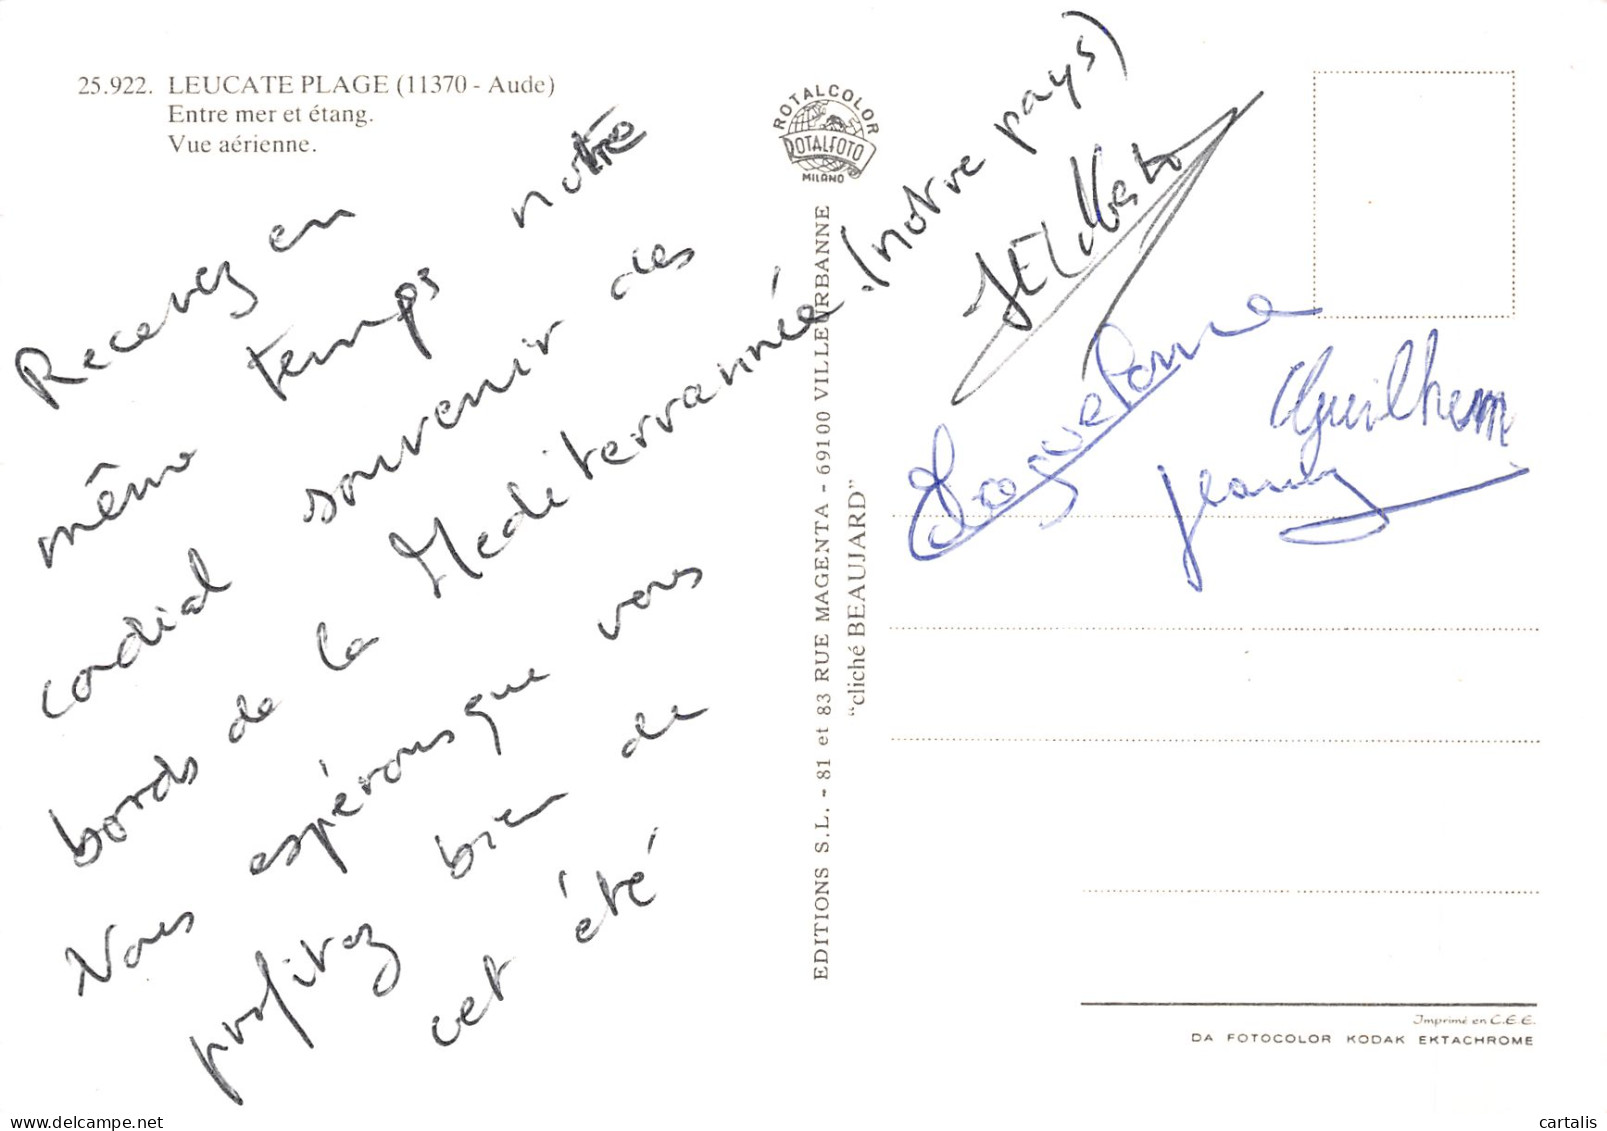 25.922. LEUCATE PLAGE (11370 - Aude)
Entre mer et étang.
Vue aérienne.
Recevez en
même temps notre
cordial souvenir des
bords de la Mediterrannée. (notre pays)
Nous espérons que vous
profitez bien de
cet été
ROTALCOLOR
ROTALFOTO
MILANO
EDITIONS S.L. - 81 et 83 RUE MAGENTA - 69100 VILLEURBANNE
"cliché BEAUJARD"
Guilhem
Imprimé en C.E.E.
DA FOTOCOLOR KODAK EKTACHROME
cartalis
delcampe.net